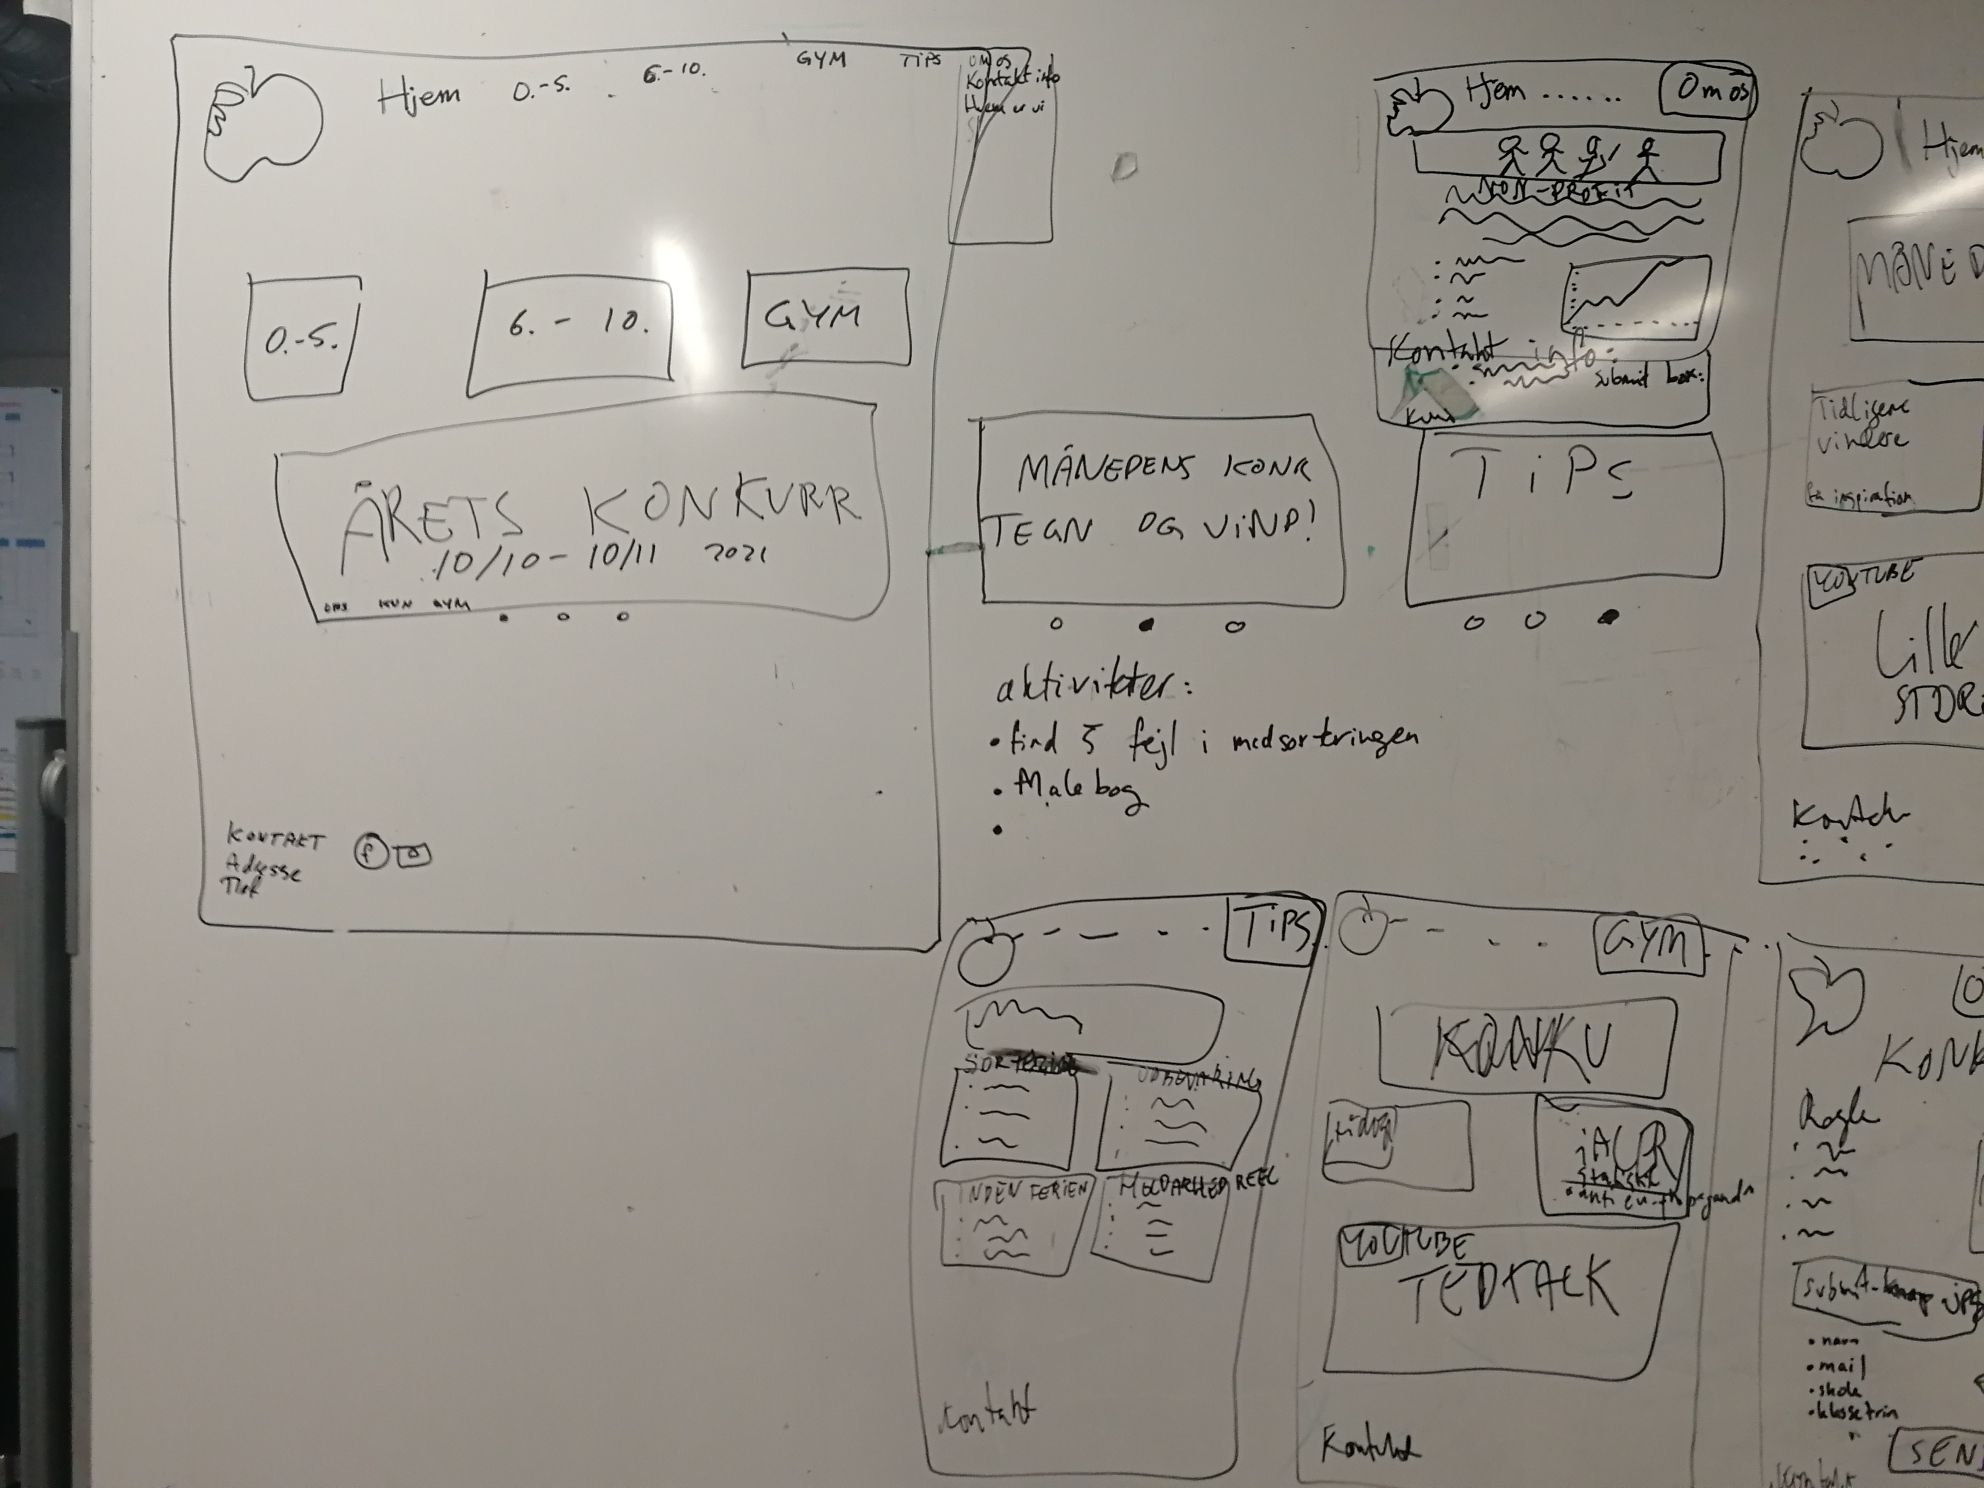 Hjem 0.-5. 6.-10. GYM TiPS OM OS
Kontakt info
Hvem er vi
0.-5.
6. - 10.
GYM
ÅRETS KONKURR
10/10 - 10/11 2021
OBS KUN GYM
KONTAKT
Adresse
Tlf
f
MÅNEDENS KONK
TEGN OG VIND!
TiPS
aktiviteter:
• find 5 fejl i madsorteringen
• Malebog
•
Hjem ...... Om os
NON-PROFIT
Kontakt info:
Submit box:
Hjem
MÅNED
Tidligere
vindere
for inspiration
YOUTUBE
Lille
STOR
TiPS
SORTERING
OPBEVARING
INDEN FERIEN
Kontakt
GYM
KONKU
YOUTUBE
TEDTALK
Kontakt
KONK
Regler
Submit-knap
• navn
• mail
• skole
• klassetrin
SEN
Kontakt